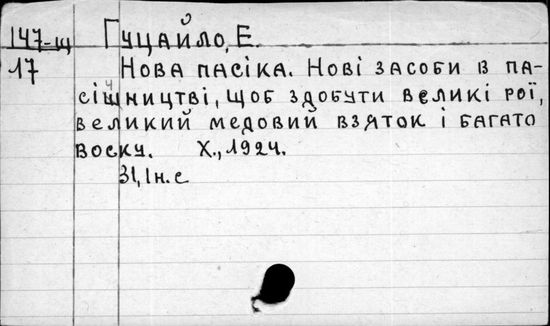 147-щ Гуцайло, Е.
17 Нова пасіка. Нові засоби в па-
січництві, щоб здобути великі рої,
великий медовий взяток і багато
воску. Х., 1924.
31, Iн. с